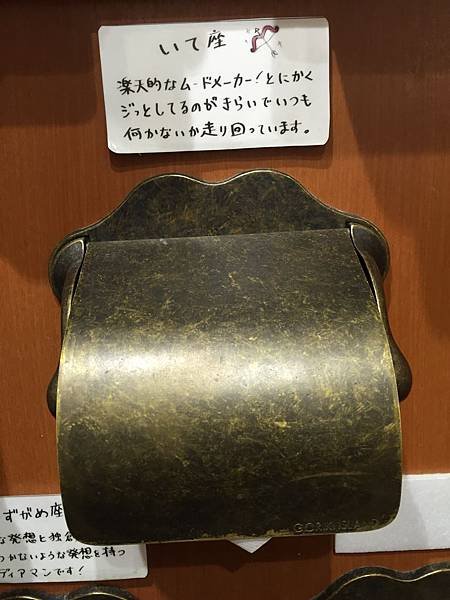 いて座
楽天的なムードメーカー！とにかく
ジッとしてるのがきらいでいつも
何かないか走り回っています。
GORIKI ISLAND
ずがめ座
な発想と独創
つかないような発想を持つ
ディアマンです！